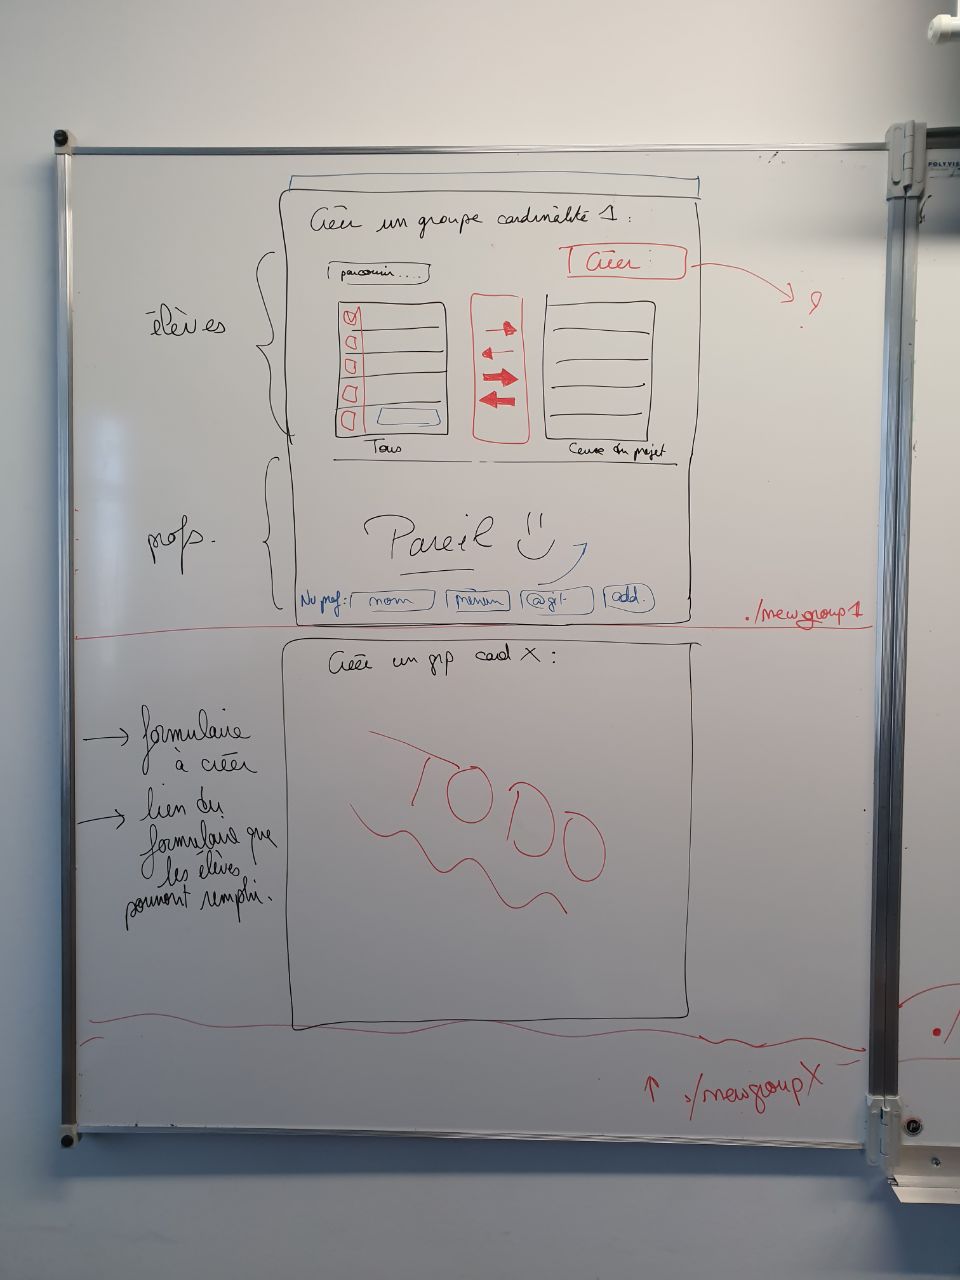 POLYVIS
Créer un groupe cardinalité 1 :
parcourir....
Créer :
?
élèves
Tous
Ceux du projet
profs.
Pareil
Nv prof :
nom
prénom
add.
./newgroup1
Créer un grp card X :
→ formulaire
à créer
→ lien du
formulaire que
les élèves
pourront remplir.
TODO
↑ ./newgroupX
./